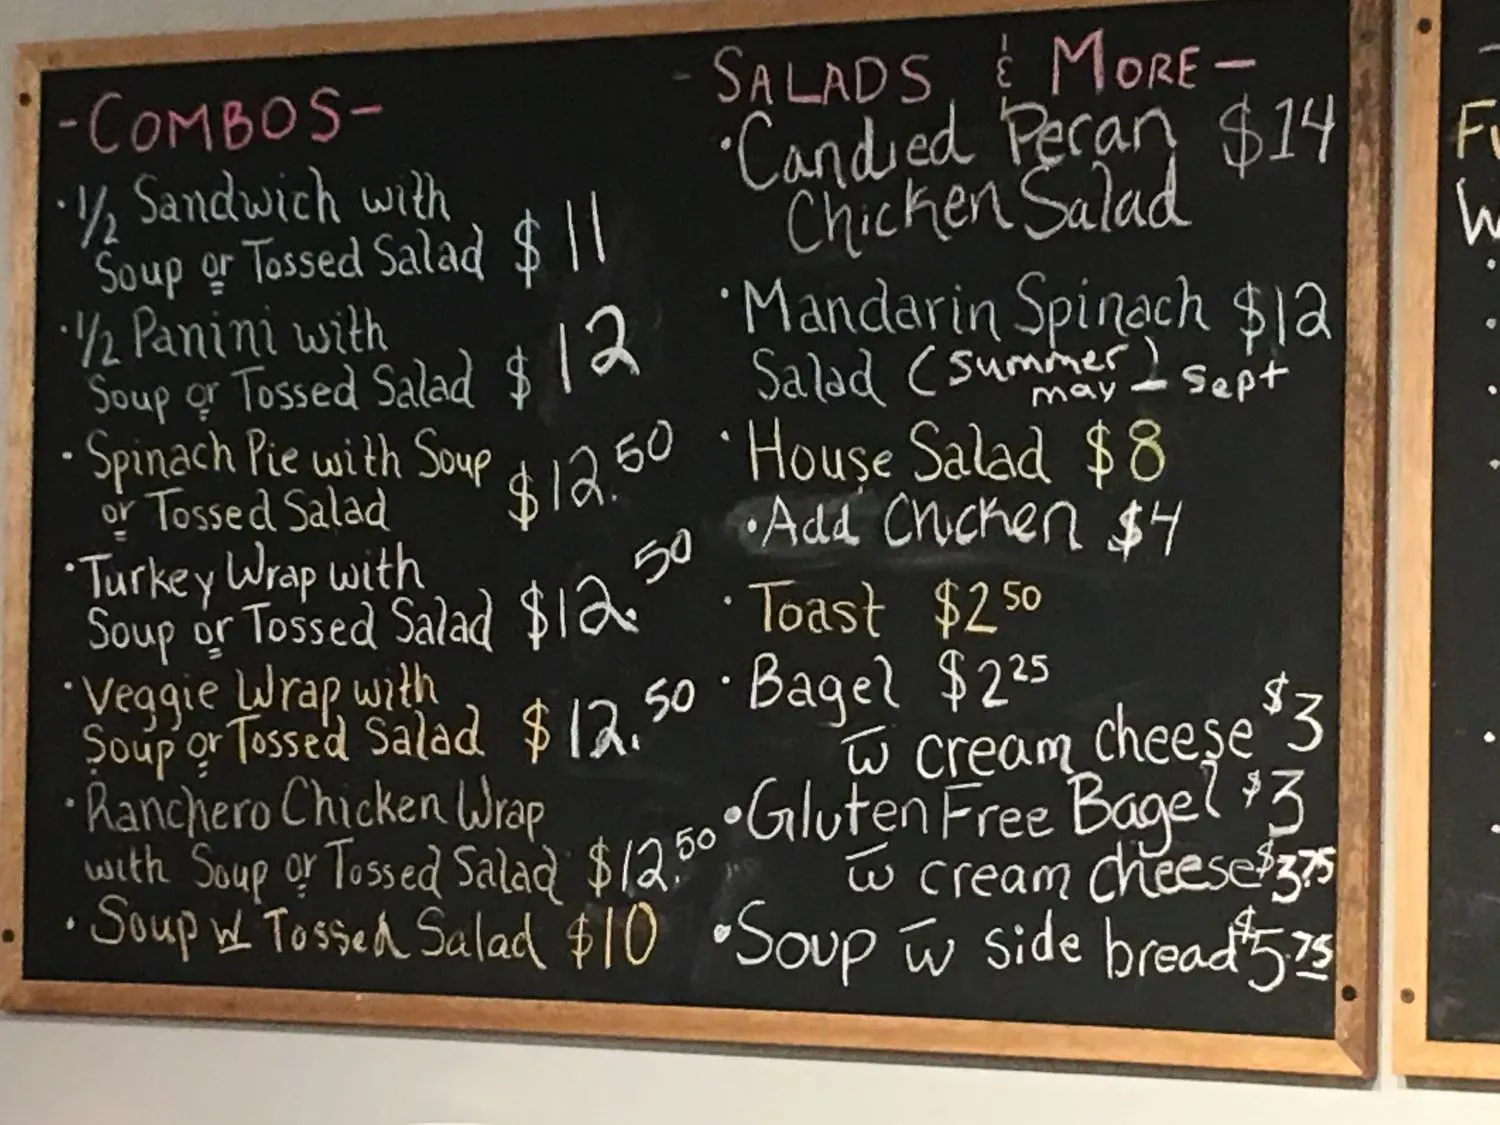 - COMBOS -
· 1/2 Sandwich with
Soup or Tossed Salad $11
· 1/2 Panini with
Soup or Tossed Salad $12
· Spinach Pie with Soup
or Tossed Salad $12.50
· Turkey Wrap with
Soup or Tossed Salad $12.50
· Veggie Wrap with
Soup or Tossed Salad $12.50
· Ranchero Chicken Wrap
with Soup or Tossed Salad $12.50
· Soup w/ Tossed Salad $10
- SALADS & MORE -
· Candied Pecan $14
Chicken Salad
· Mandarin Spinach $12
Salad (summer)
may - sept
· House Salad $8
· Add Chicken $4
· Toast $2 50
· Bagel $2 25
w̅ cream cheese $3
· Gluten Free Bagel $3
w̅ cream cheese $3.75
· Soup w̅ side bread $5.75